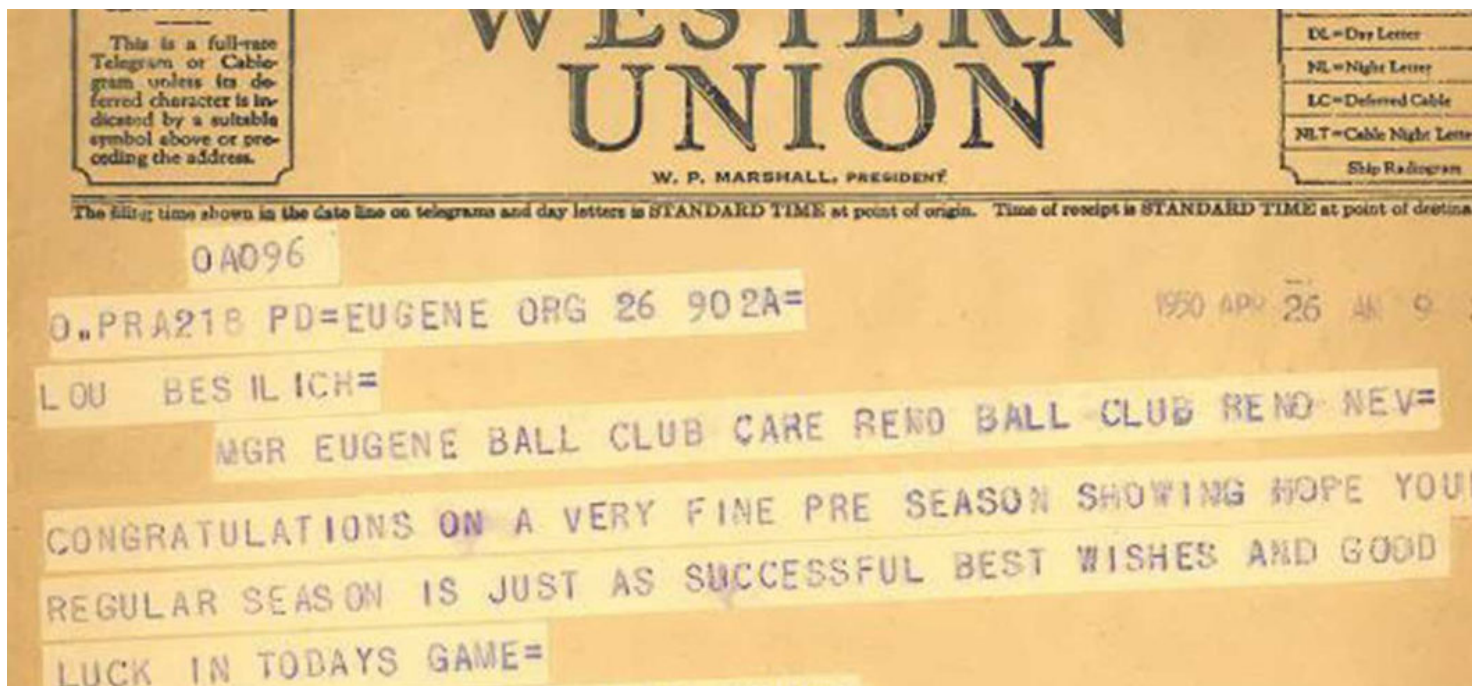 This is a full-rate
Telegram or Cable-
gram unless its de-
ferred character is in-
dicated by a suitable
symbol above or pre-
ceding the address.
WESTERN
UNION
W. P. MARSHALL, PRESIDENT
DL=Day Letter
NL=Night Letter
LC=Deferred Cable
NLT=Cable Night Lette
Ship Radiogram
The filing time shown in the date line on telegrams and day letters is STANDARD TIME at point of origin. Time of receipt is STANDARD TIME at point of destina
OA096
O.PRA218 PD=EUGENE ORG 26 902A=
1950 APR 26 AM 9
LOU BESILICH=
MGR EUGENE BALL CLUB CARE RENO BALL CLUB RENO NEV=
CONGRATULATIONS ON A VERY FINE PRE SEASON SHOWING HOPE YOU
REGULAR SEASON IS JUST AS SUCCESSFUL BEST WISHES AND GOOD
LUCK IN TODAYS GAME=